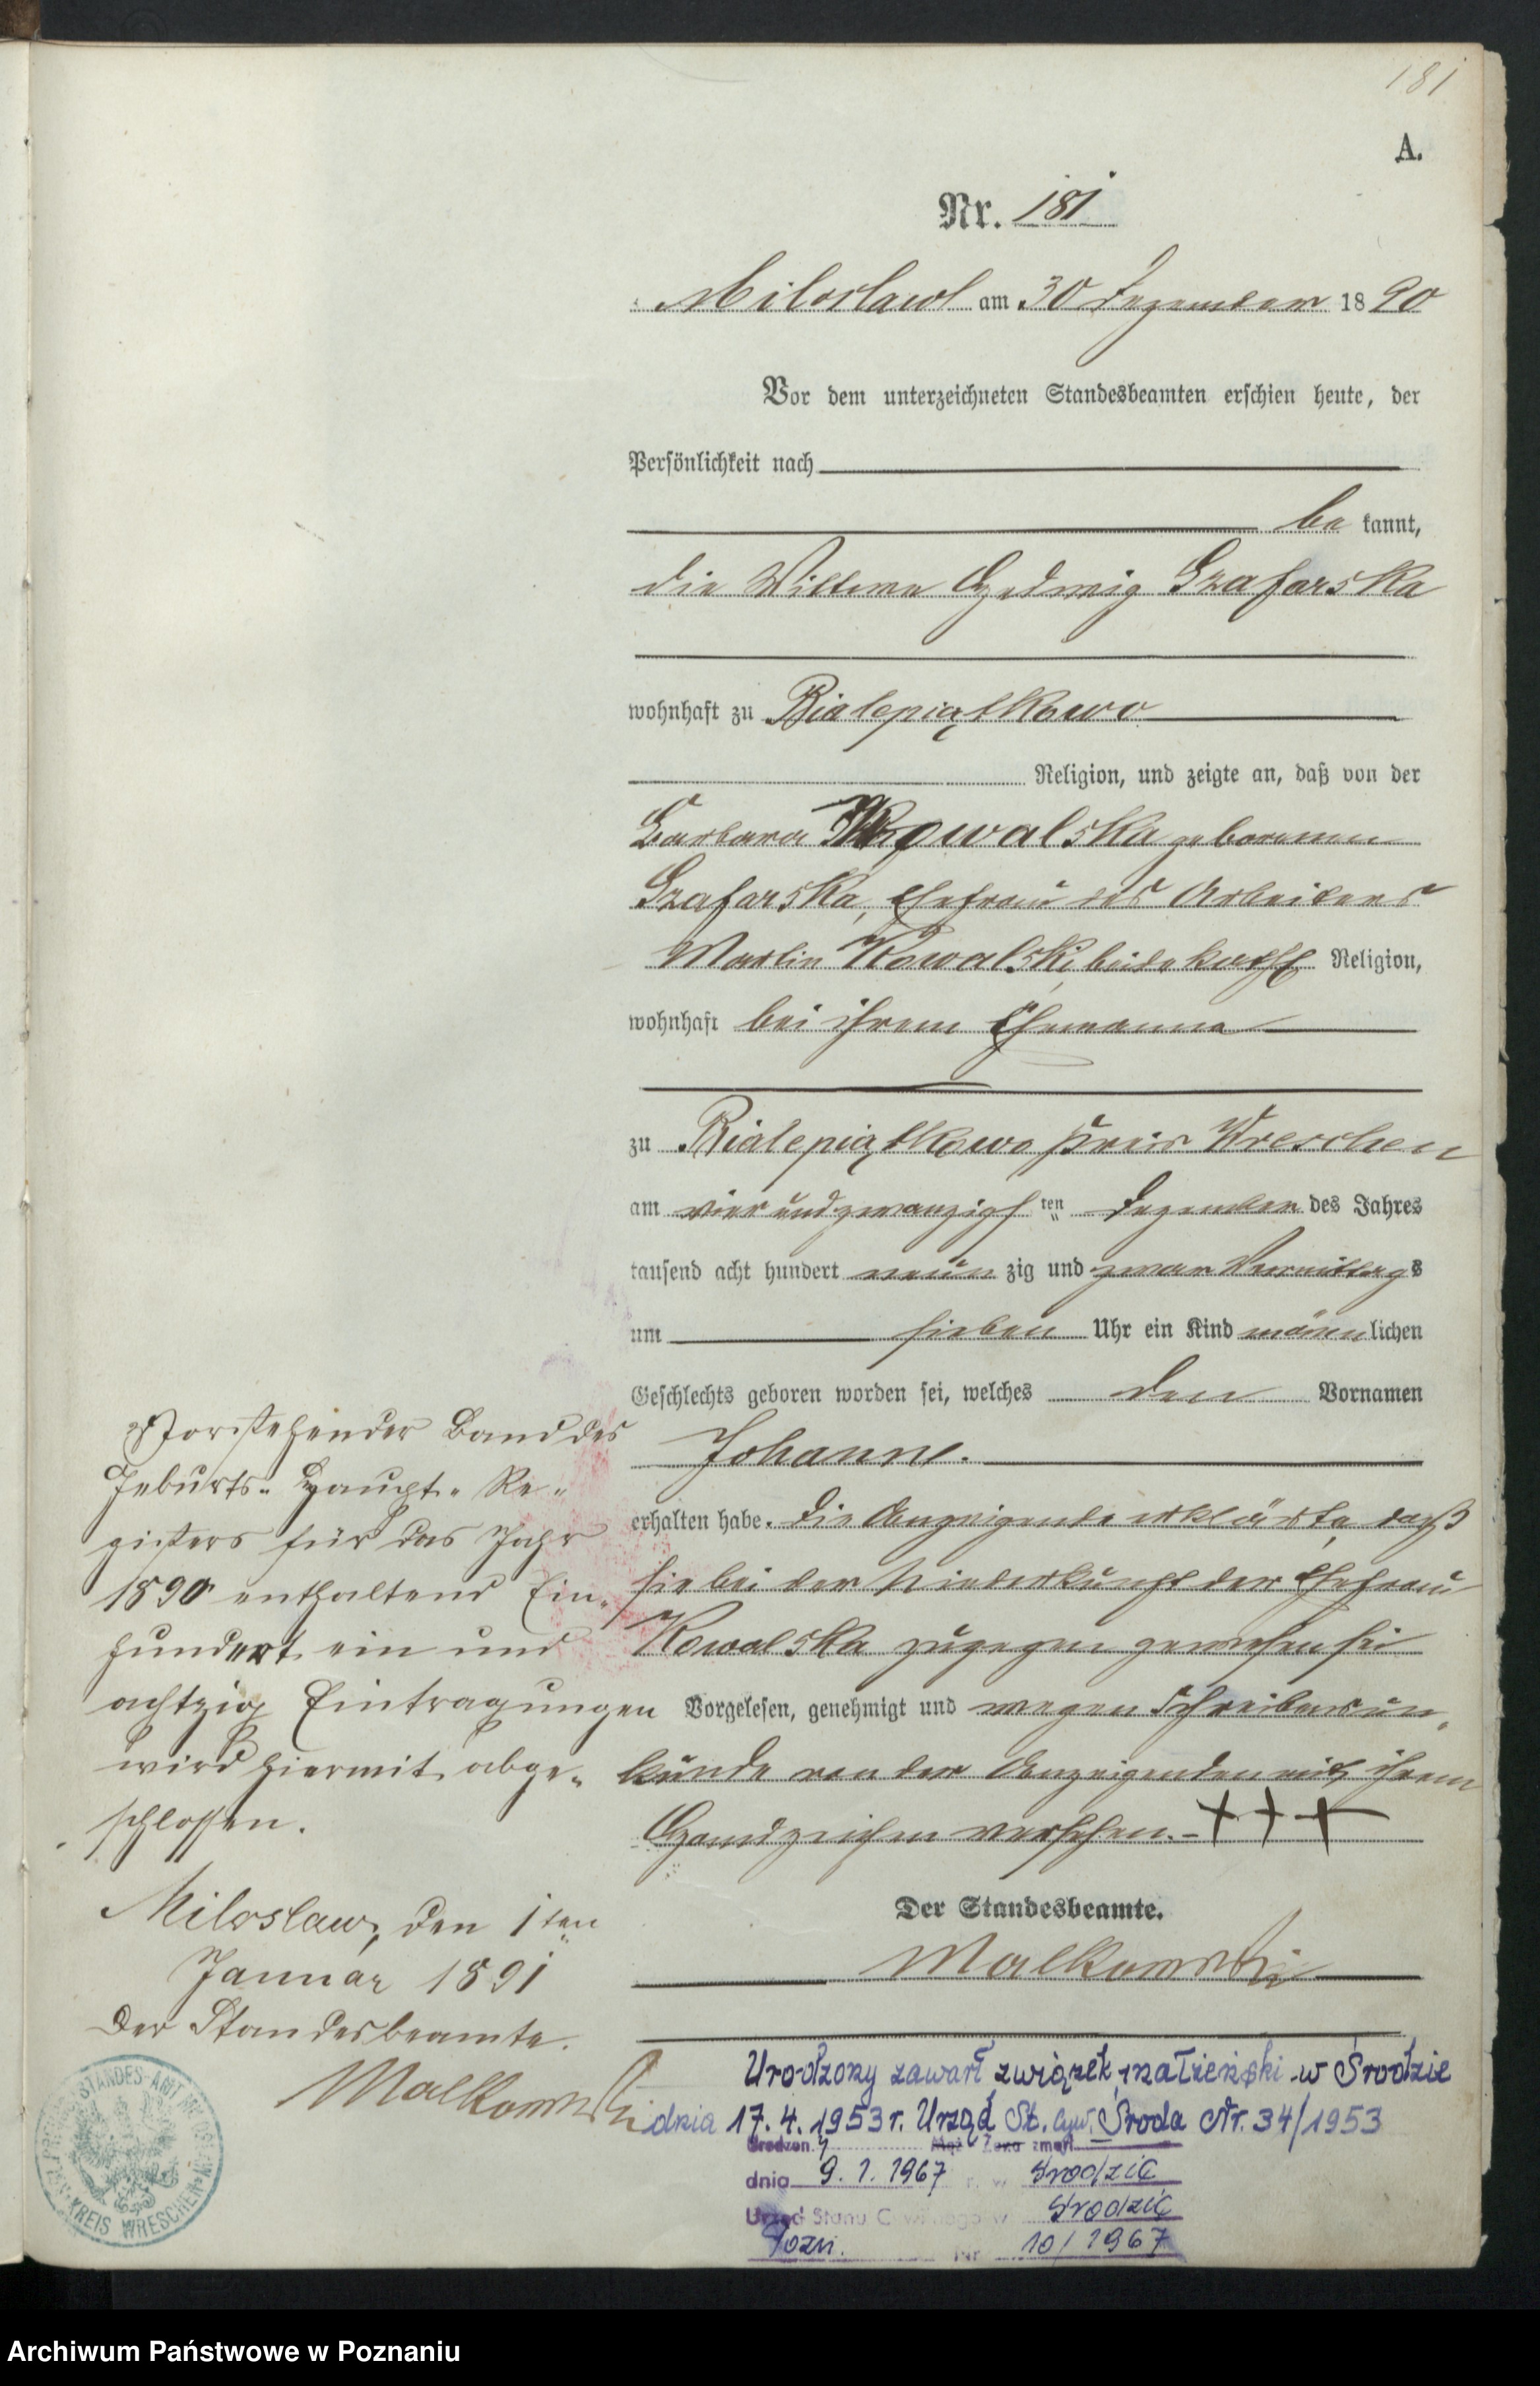 181
A.
Nr. 181
Miloslaw am 30 Dezember 1890
Vor dem unterzeichneten Standesbeamten erschien heute, der
Persönlichkeit nach
be kannt,
die Wittwe Hedwig Szafarska
wohnhaft zu Bialepiątkowo
Religion, und zeigte an, daß von der
Barbara Kowalska geborenen
Szafarska, Ehefrau des Arbeiters
Martin Kowalski, beide kathl Religion,
wohnhaft bei ihrem Ehemanne
zu Bialepiątkowo Kreis Wreschen
am vier und zwanzigsten Dezember des Jahres
tausend acht hundert neunzig und zwar Vormittags
um sieben Uhr ein Kind männlichen
Geschlechts geboren worden sei, welches den Vornamen
Johann.
erhalten habe. Die Anzeigende erklärte, daß
sie bei der Niederkunft der Ehefrau
Kowalska zugegen gewesen sei
Vorgelesen, genehmigt und wegen Schreibensun-
kunde von der Anzeigenden mit ihrem
Handzeichen versehen. - +++
Der Standesbeamte.
Malkowski
Vorstehender Band des
Geburts- Haupt- Re-
gisters für das Jahr
1890 enthaltend Ein-
hundert ein und
achtzig Eintragungen
wird hiermit abge-
schlossen.
Miloslaw, den 1ten
Januar 1891
Der Standesbeamte.
Malkowski
KREIS WRESCHEN
Urodzony zawarł związek małżeński w Środzie
dnia 17.4.1953 r. Urząd St. Cyw. Środa Nr. 34/1953
Urodzony Mąż Żona zmarł
dnia 9.1.1967 r. w Środzie
Urząd Stanu Cywilnego w Środzie
Pozn. Nr 10/1967
Archiwum Państwowe w Poznaniu